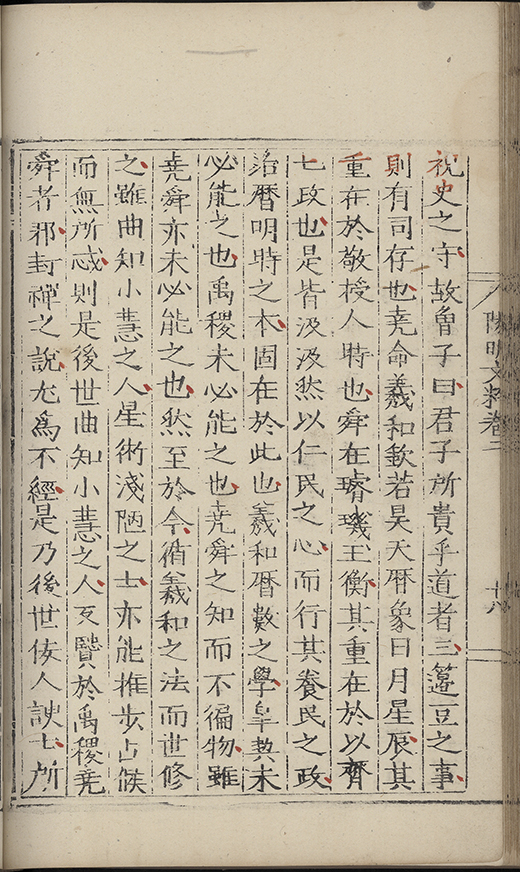 陽明文粹卷二
十八
祝史之守故曾子曰君子所貴乎道者三籩豆之事
則有司存也堯命羲和欽若昊天曆象日月星辰其
重在於敬授人時也舜在璿璣玉衡其重在於以齊
七政也是皆汲汲然以仁民之心而行其養民之政
治曆明時之本固在於此也羲和曆數之學皐契未
必能之也禹稷未必能之也堯舜之知而不徧物雖
堯舜亦未必能之也然至於今循羲和之法而世修
之雖曲知小慧之人星術淺陋之士亦能推步占候
而無所忒則是後世曲知小慧之人反賢於禹稷堯
舜者邪封禪之說尤為不經是乃後世佞人諛士所